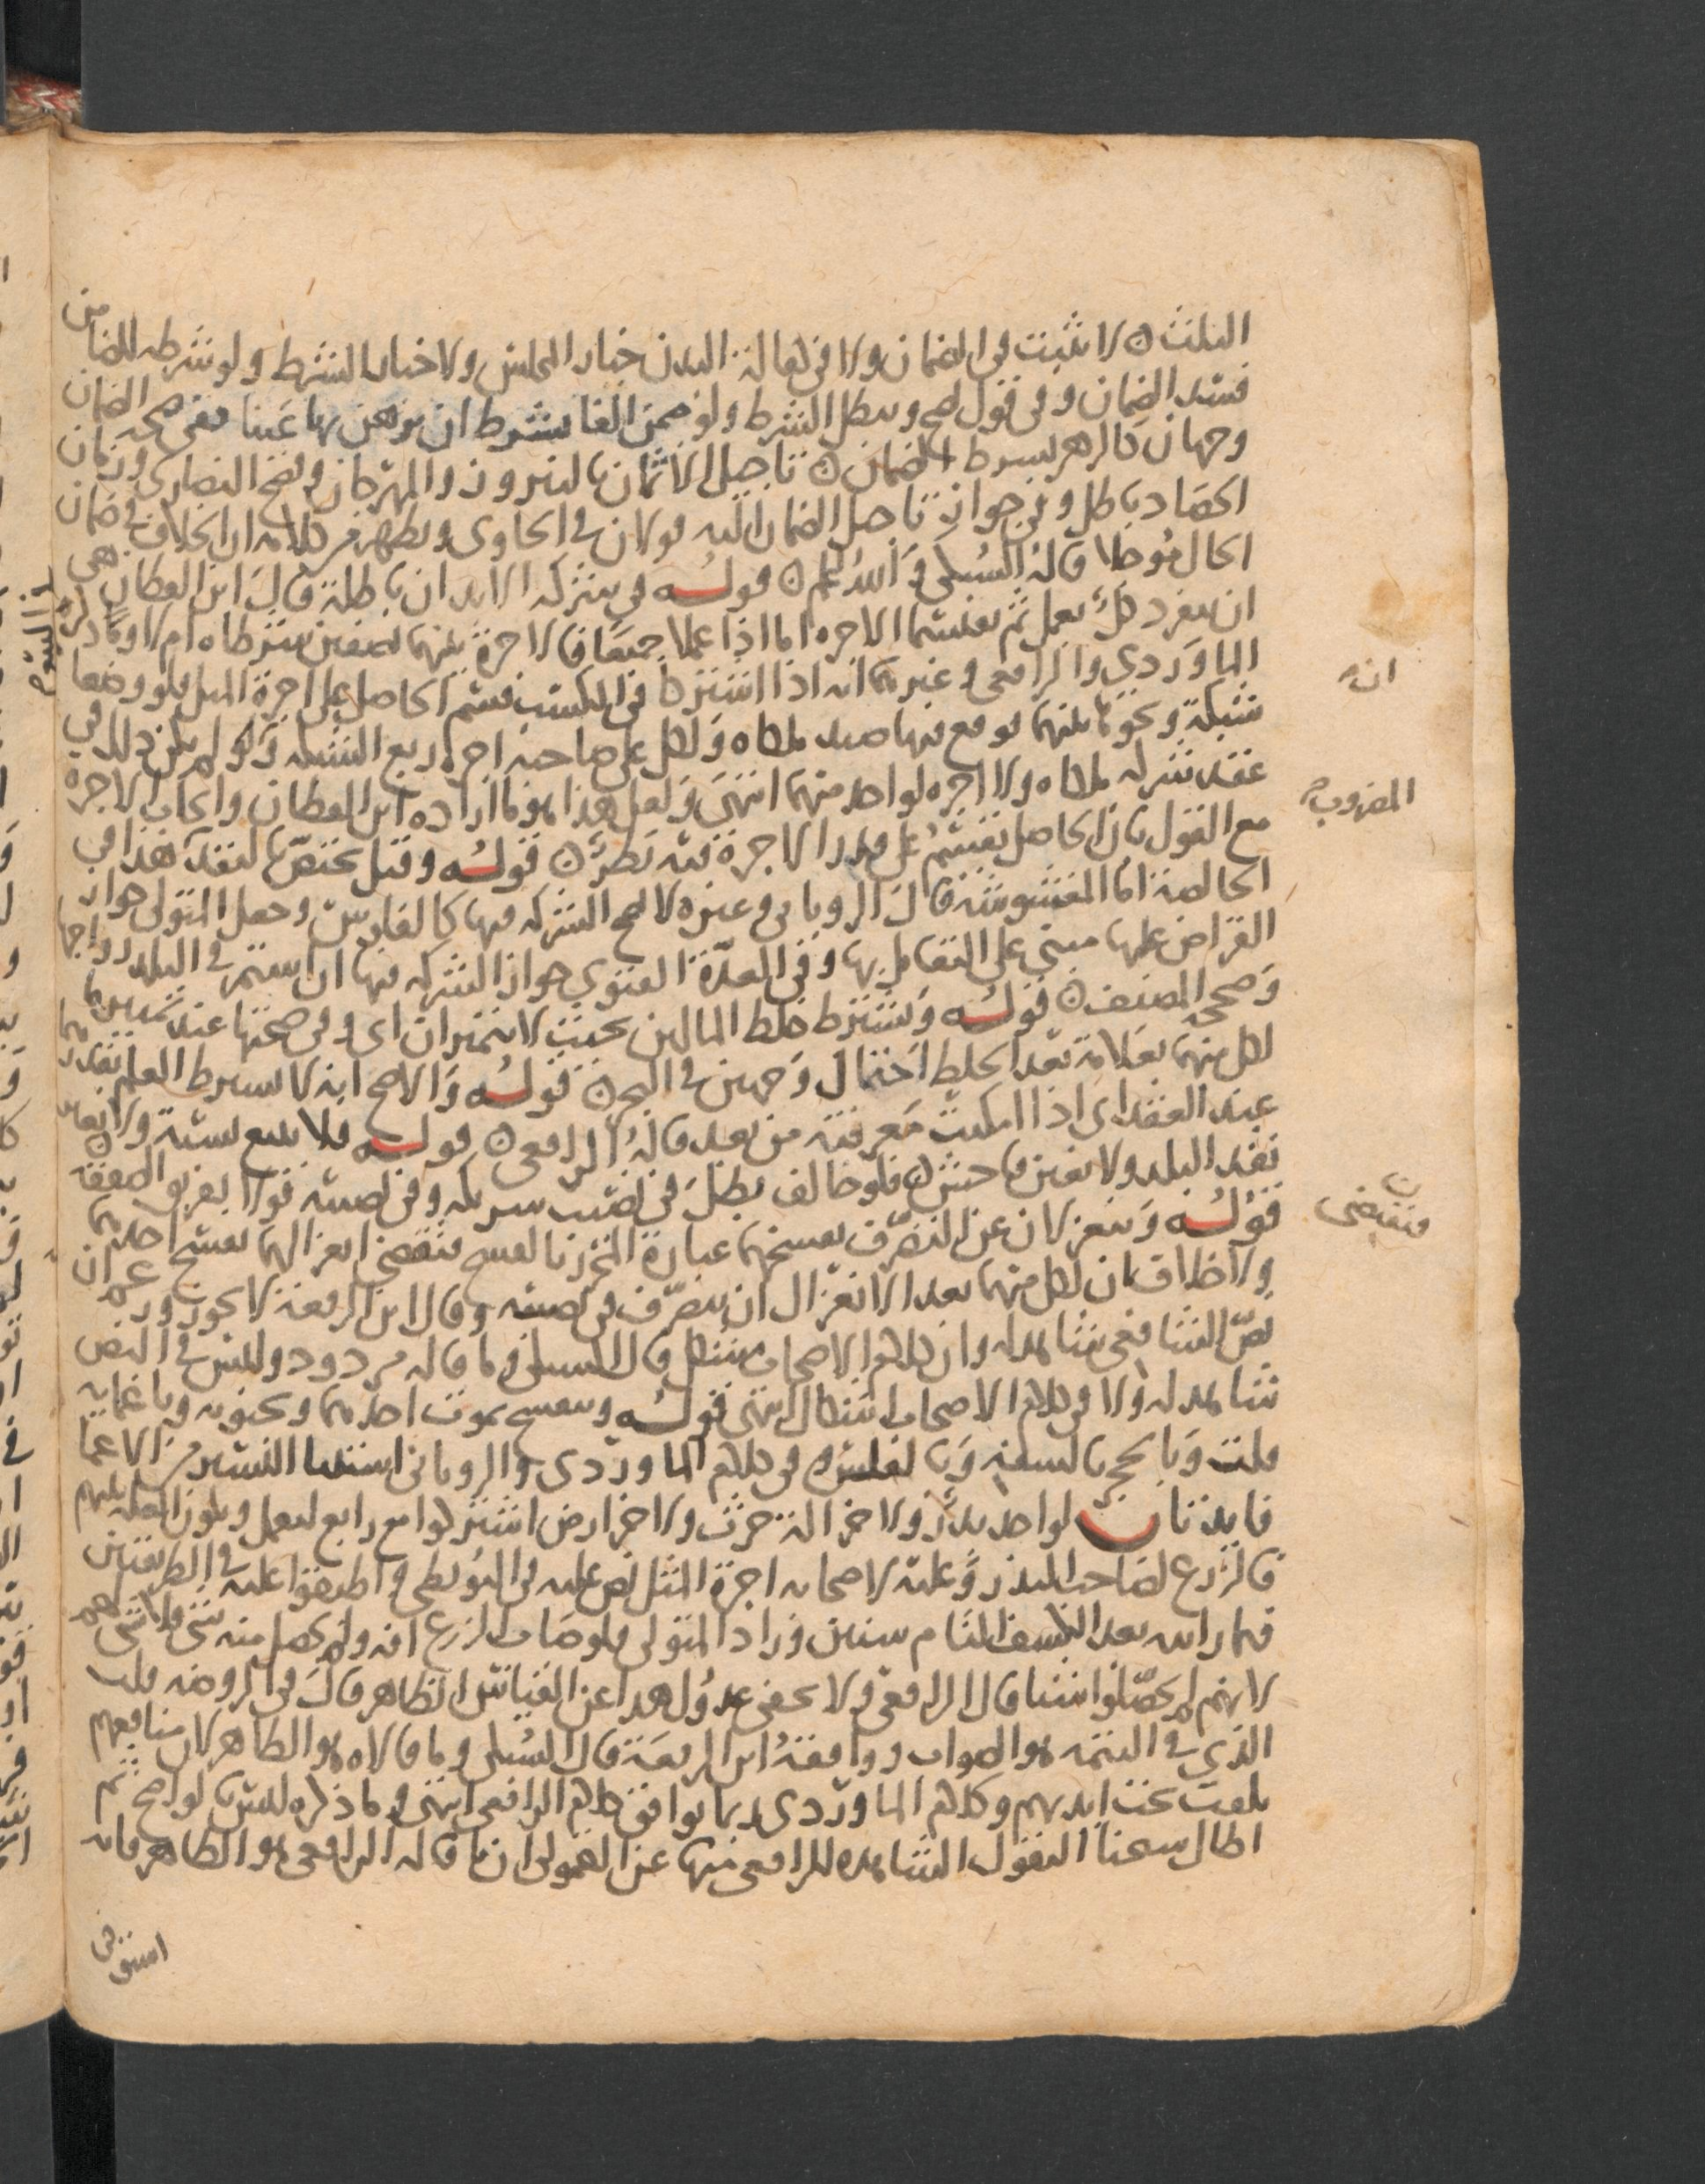 الثلث ٥ لا يثبت في الضمان ولا في كفالة البدن خيار المجلس ولا خيار الشرط ولو شرطه للضامن
فسد الضمان وفي قول يصح ويبطل الشرط ولو ضمن الفا بشرط ان يرهن بها عينا ففي صحة الضمان
وجهان كالرهن بشرط الضمان ٥ تاجيل الاثمان بالنيروز والمهرجان وفصح النصارى وزمان
الحصاد باطل وفي جواز تاجيل الضمان اليه قولان في الحاوي ويظهر من كلامه ان الخلاف في ضمان
الحال مؤجلا قاله السبكي والله اعلم ٥ قوله في شركة الابدان باطلة قال ابن القطان هي
ان ينفرد كل بعمل ثم يقتسما الاجرة اما اذا عملا جميعا فالاجرة بينهما نصفين شرطاه ام لا وذكر
الماوردي والرافعي وغيرهما انه اذا اشتركا في الكسب قسم الحاصل على اجرة المثل فلو وضعا
شبكة ونحوها بينهما فوقع فيها صيد ملكاه ولكل على صاحبه اجرة ربع الشبكة ولو لم يكن ذلك في
عقد شركة ملكاه ولا اجرة لواحد منهما انتهى ولعل هذا هو ما اراده ابن القطان وايجاب الاجرة
مع القول بان الحاصل يقسم على قدر الاجرة فيه نظر ٥ قوله وقيل يختص بالنقد هذا في
الخالصة اما المغشوشة فقال الروياني وغيره لا تصح الشركة فيها كالقراض وجعل المتولي جواز
القراض عليها مبني على التعامل بها وفي العدة الفتوى جواز الشركة فيها ان استمر في البلد رواجها
وصححه المصنف ٥ قوله ويشترط خلط المالين بحيث لا يتميزان اي وفي صحتها عند تمييزهما
لكل منهما بعلامة بعد الخلط احتمال وجهين في البحر ٥ قوله والاصح انه لا يشترط العلم بقدرهما
عند العقد اي اذا امكنت معرفته من بعد قاله الرافعي ٥ قوله فلا يبيع نسيئة ولا بغير
نقد البلد ولا بغبن فاحش ٥ فلو خالف بطل في نصيب شريكه وفي نصيبه قولا تفريق الصفقة ٥
قوله وينعزلان عن التصرف بفسخهما عبارة المحرر بالفسخ فتقتضي انعزالهما بفسخ احدهما
ولا خلاف ان لكل منهما بعد الانعزال ان يتصرف في نصيبه وقال ابن الرفعة لا يجوز وزعم ان
نص الشافعي شاهد له وان كلام الاصحاب مشكل قال السبكي وما قاله مردود وليس في النص
شاهد له ولا في كلام الاصحاب اشكال انتهى قوله وينفسخ بموت احدهما وبجنونه وباغمائه
قلت وبالحجر بالسفه وبالفلس وفي كلام الماوردي والروياني استثنا اليسير من الاغما
فايدتان لواحد بذر ولاخر الة حرث ولاخر ارض اشتركوا مع رابع ليعمل ويكون الغلة بينهم
فالزرع لصاحب البذر وعليه لاصحابه اجرة المثل نص عليه في البويطي واطبقوا عليه في الطريقين
فيما رايته بعد الكشف التام سنين وزاد المتولي فلو صاب الزرع افة ولم يحصل منه شيء فلا شيء لهم
لانهم لم يحصلوا شيا قال الرافعي ولا يخفى عدول هذا عن القياس الظاهر قال في الروضة قلت
الذي في التتمة هو الصواب ووافقه ابن الرفعة قال السبكي وما قالاه هو الظاهر لان منافعهم
تلفت تحت ايديهم وكلام الماوردي ربما يوافق كلام الرافعي انتهى وما ذكره ليس بواضح ثم
اطال شيخنا النقول الشاهدة للرافعي منها عن القمولي ان ما قاله الرافعي هو الظاهر فانه
انه
المضروب
فتقتضي
في اليتيم
استوفى